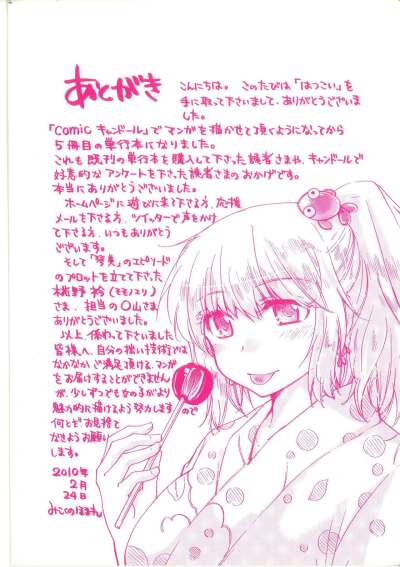 あとがき
こんにちは。このたびは「はつこい」を
手に取って下さいまして、ありがとうございま
した。
「comic キャンドール」でマンガを描かせて頂くようになってから
5冊目の単行本になりました。
これも既刊の単行本を購入して下さった読者さまや、キャンドールで
好意的なアンケートを下さった読者さまのおかげです。
本当にありがとうございました。
ホームページに遊びに来て下さる方、応援
メールを下さる方、ツイッターで声をかけ
て下さる方、いつもありがとう
ございます。
そして「琴美」のエピソード
のプロットを立てて下さった
桃野衿(モモノエリ)
さま、担当の〇山さま、
ありがとうございました。
以上、係わって下さいました
皆様へ、自分の拙い技術では
なかなかご満足頂ける、マンガ
をお届けすることができません
が、少しずつでも女のコがより
魅力的に描けるよう努力しますので
何とぞお見捨て
なきようお願い
します。
2010年
2月
24日
みこのほまれ